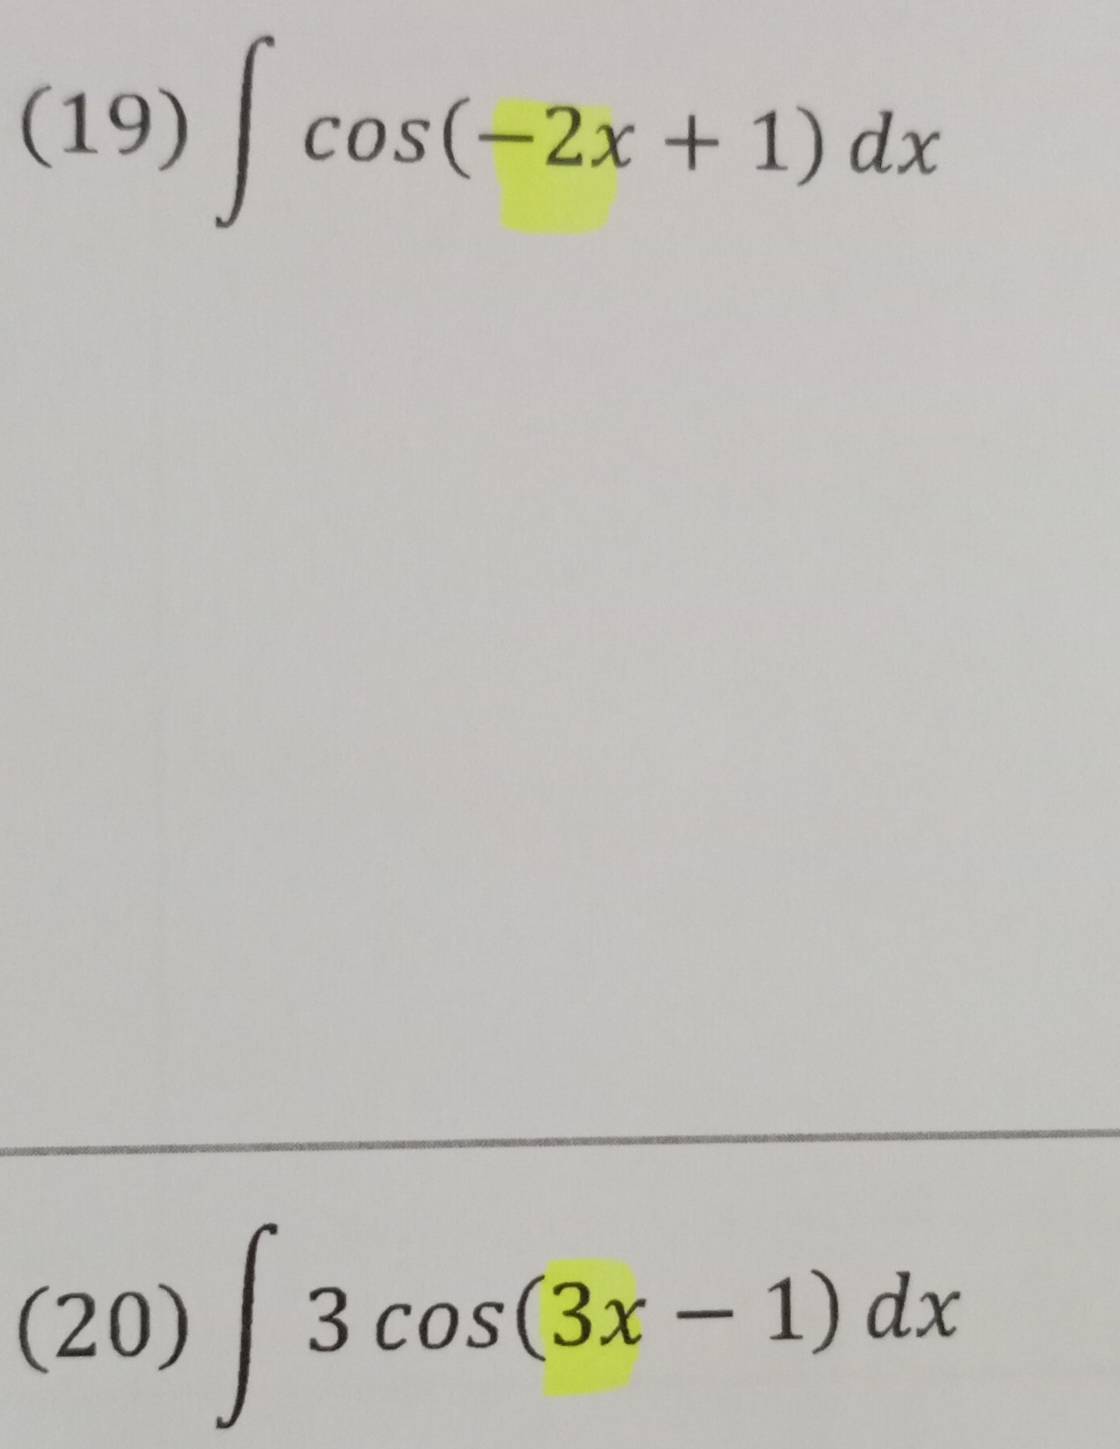 (19) ∫ cos(−2x + 1) dx
(20) ∫ 3 cos(3x − 1) dx